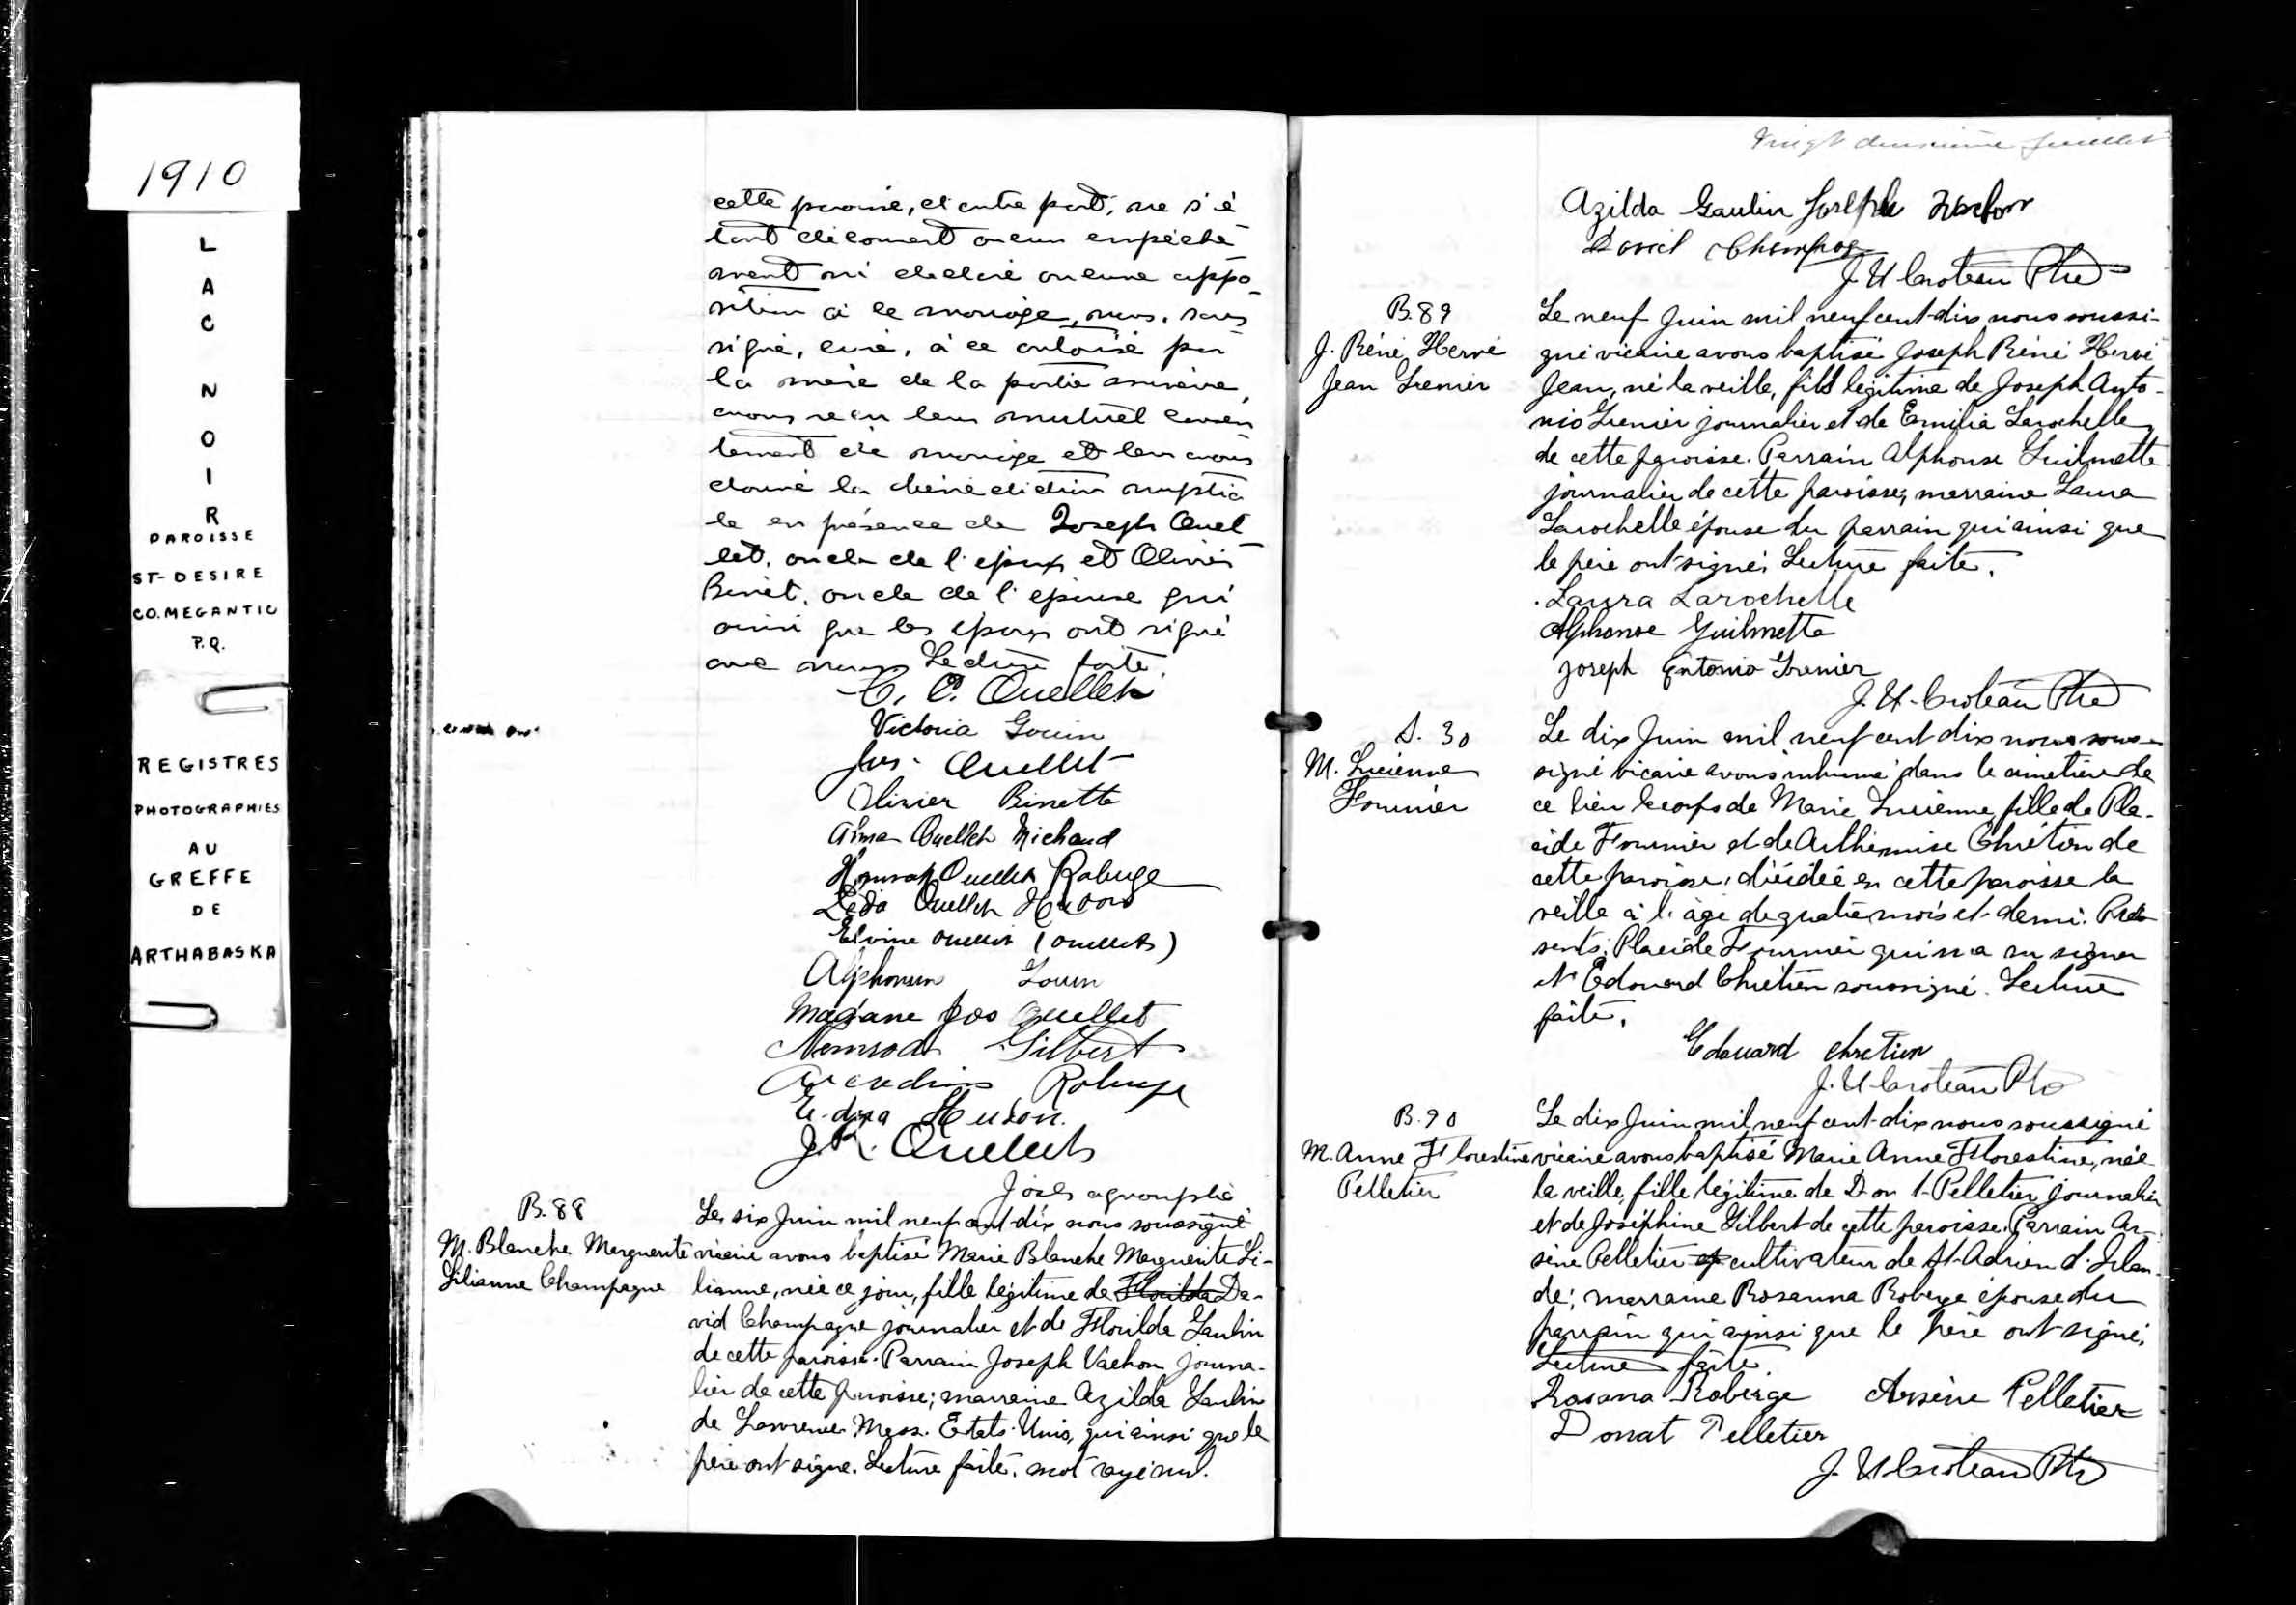 1910
L
A
C
N
O
I
R
PAROISSE
ST-DESIRE
CO. MEGANTIC
P.Q.
REGISTRES
PHOTOGRAPHIES
AU
GREFFE
DE
ARTHABASKA
cette paroisse, d'autre part, ne s'é
tant découvert aucun empêche
ment ni déclaré aucune oppo-
sition à ce mariage, nous, sous
signé, curé, à ce autorisé par
la mère de la partie mineure,
avons reçu leur mutuel consen
tement de mariage et leur avons
donné la bénédiction nuptia
le en présence de Joseph Ouel
let, oncle de l'époux et Olivier
Binet, oncle de l'épouse qui
ainsi que les époux ont signé
avec nous Lecture faite.
Ouellet
Victoria Gouin
Jos. Ouellet
Olivier Binette
Anna Ouellet Michaud
Ouellet Roberge
Léda Ouellet Hudon
Elvine Ouellet (Ouellets)
Alphonse Gouin
Madame Jos Ouellet
Nemrod Gilbert
Roberge
Edna Hudon.
J. R. Ouellets
B. 88
M. Blanche Marguerite
Lilianne Champagne
Le six Juin mil neuf cent-dix nous soussigné
vicaire avons baptisé Marie Blanche Marguerite Li-
lianne, née ce jour, fille légitime de Florilda Da-
vid Champagne journalier et de Florilda Gaulin
de cette paroisse. Parrain Joseph Vachon journa-
lier de cette paroisse; marraine Azilda Gaulin
de Lawrence Mass. Etats-Unis, qui ainsi que le
père ont signé. Lecture faite. mot rayé nul.
Vingt deuxième feuillet
Azilda Gaulin Joseph Vachon
David Champag
J. U Croteau Ptre
B. 89
J. Réné Hervé
Jean Grenier
Le neuf Juin mil neuf cent-dix nous soussi-
gné vicaire avons baptisé Joseph Réné Hervé
Jean, né la veille, fils légitime de Joseph Anto-
nio Grenier journalier et de Emilia Larochelle
de cette paroisse. Parrain Alphonse Guilmette
journalier de cette paroisse, marraine Laura
Larochelle épouse du parrain qui ainsi que
le père ont signé. Lecture faite.
Laura Larochelle
Alphonse Guilmette
Joseph Antonio Grenier
J. U. Croteau Ptre
S. 30
M. Lucienne
Fournier
Le dix Juin mil neuf cent dix nous sous-
signé vicaire avons inhumé dans le cimetière de
ce lieu le corps de Marie Lucienne, fille de Pla-
cide Fournier et de Arthémise Chrétien de
cette paroisse, décédée en cette paroisse la
veille à l'âge de quatre mois et demi. Pré-
sents: Placide Fournier qui n'a su signer
et Edouard Chrétien soussigné. Lecture
faite.
Edouard Chretien
J. U Croteau Ptre
B. 90
M. Anne Florestine
Pelletier
Le dix Juin mil neuf cent-dix nous soussigné
vicaire avons baptisé Marie Anne Florestine, née
la veille, fille légitime de Donat Pelletier journalier
et de Joséphine Gilbert de cette paroisse. Parrain Ar-
sène Pelletier cultivateur de St-Adrien d'Irlan-
de; marraine Rosanna Roberge épouse du
parrain qui ainsi que le père ont signé.
Lecture faite.
Rosana Roberge Arsène Pelletier
Donat Pelletier
J. U Croteau Ptre